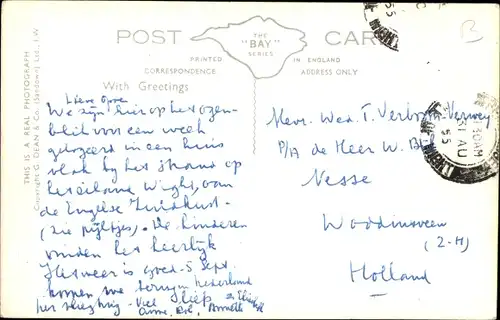 POST CARD
THE "BAY" SERIES
PRINTED IN ENGLAND
CORRESPONDENCE ADDRESS ONLY
With Greetings
THIS IS A REAL PHOTOGRAPH
Copyright G. DEAN & Co. (Sandown) Ltd., I.W
Lieve
We zijn hier op het ogen-
blik voor een week
gelogeerd in een huis
vlak bij het strand op
het eiland Wight, van
de Engelse Zuidkust
(zie pijltjes). De kinderen
vinden het heerlijk
Het weer is goed. 5 Sept.
hopen we terug in Nederland
Veel liefs
Mevr. Wed. T. Verloop-Verwey
P/A de Heer W.
Nesse
Woddinxveen
(Z-H)
Holland
31 AU
55
B